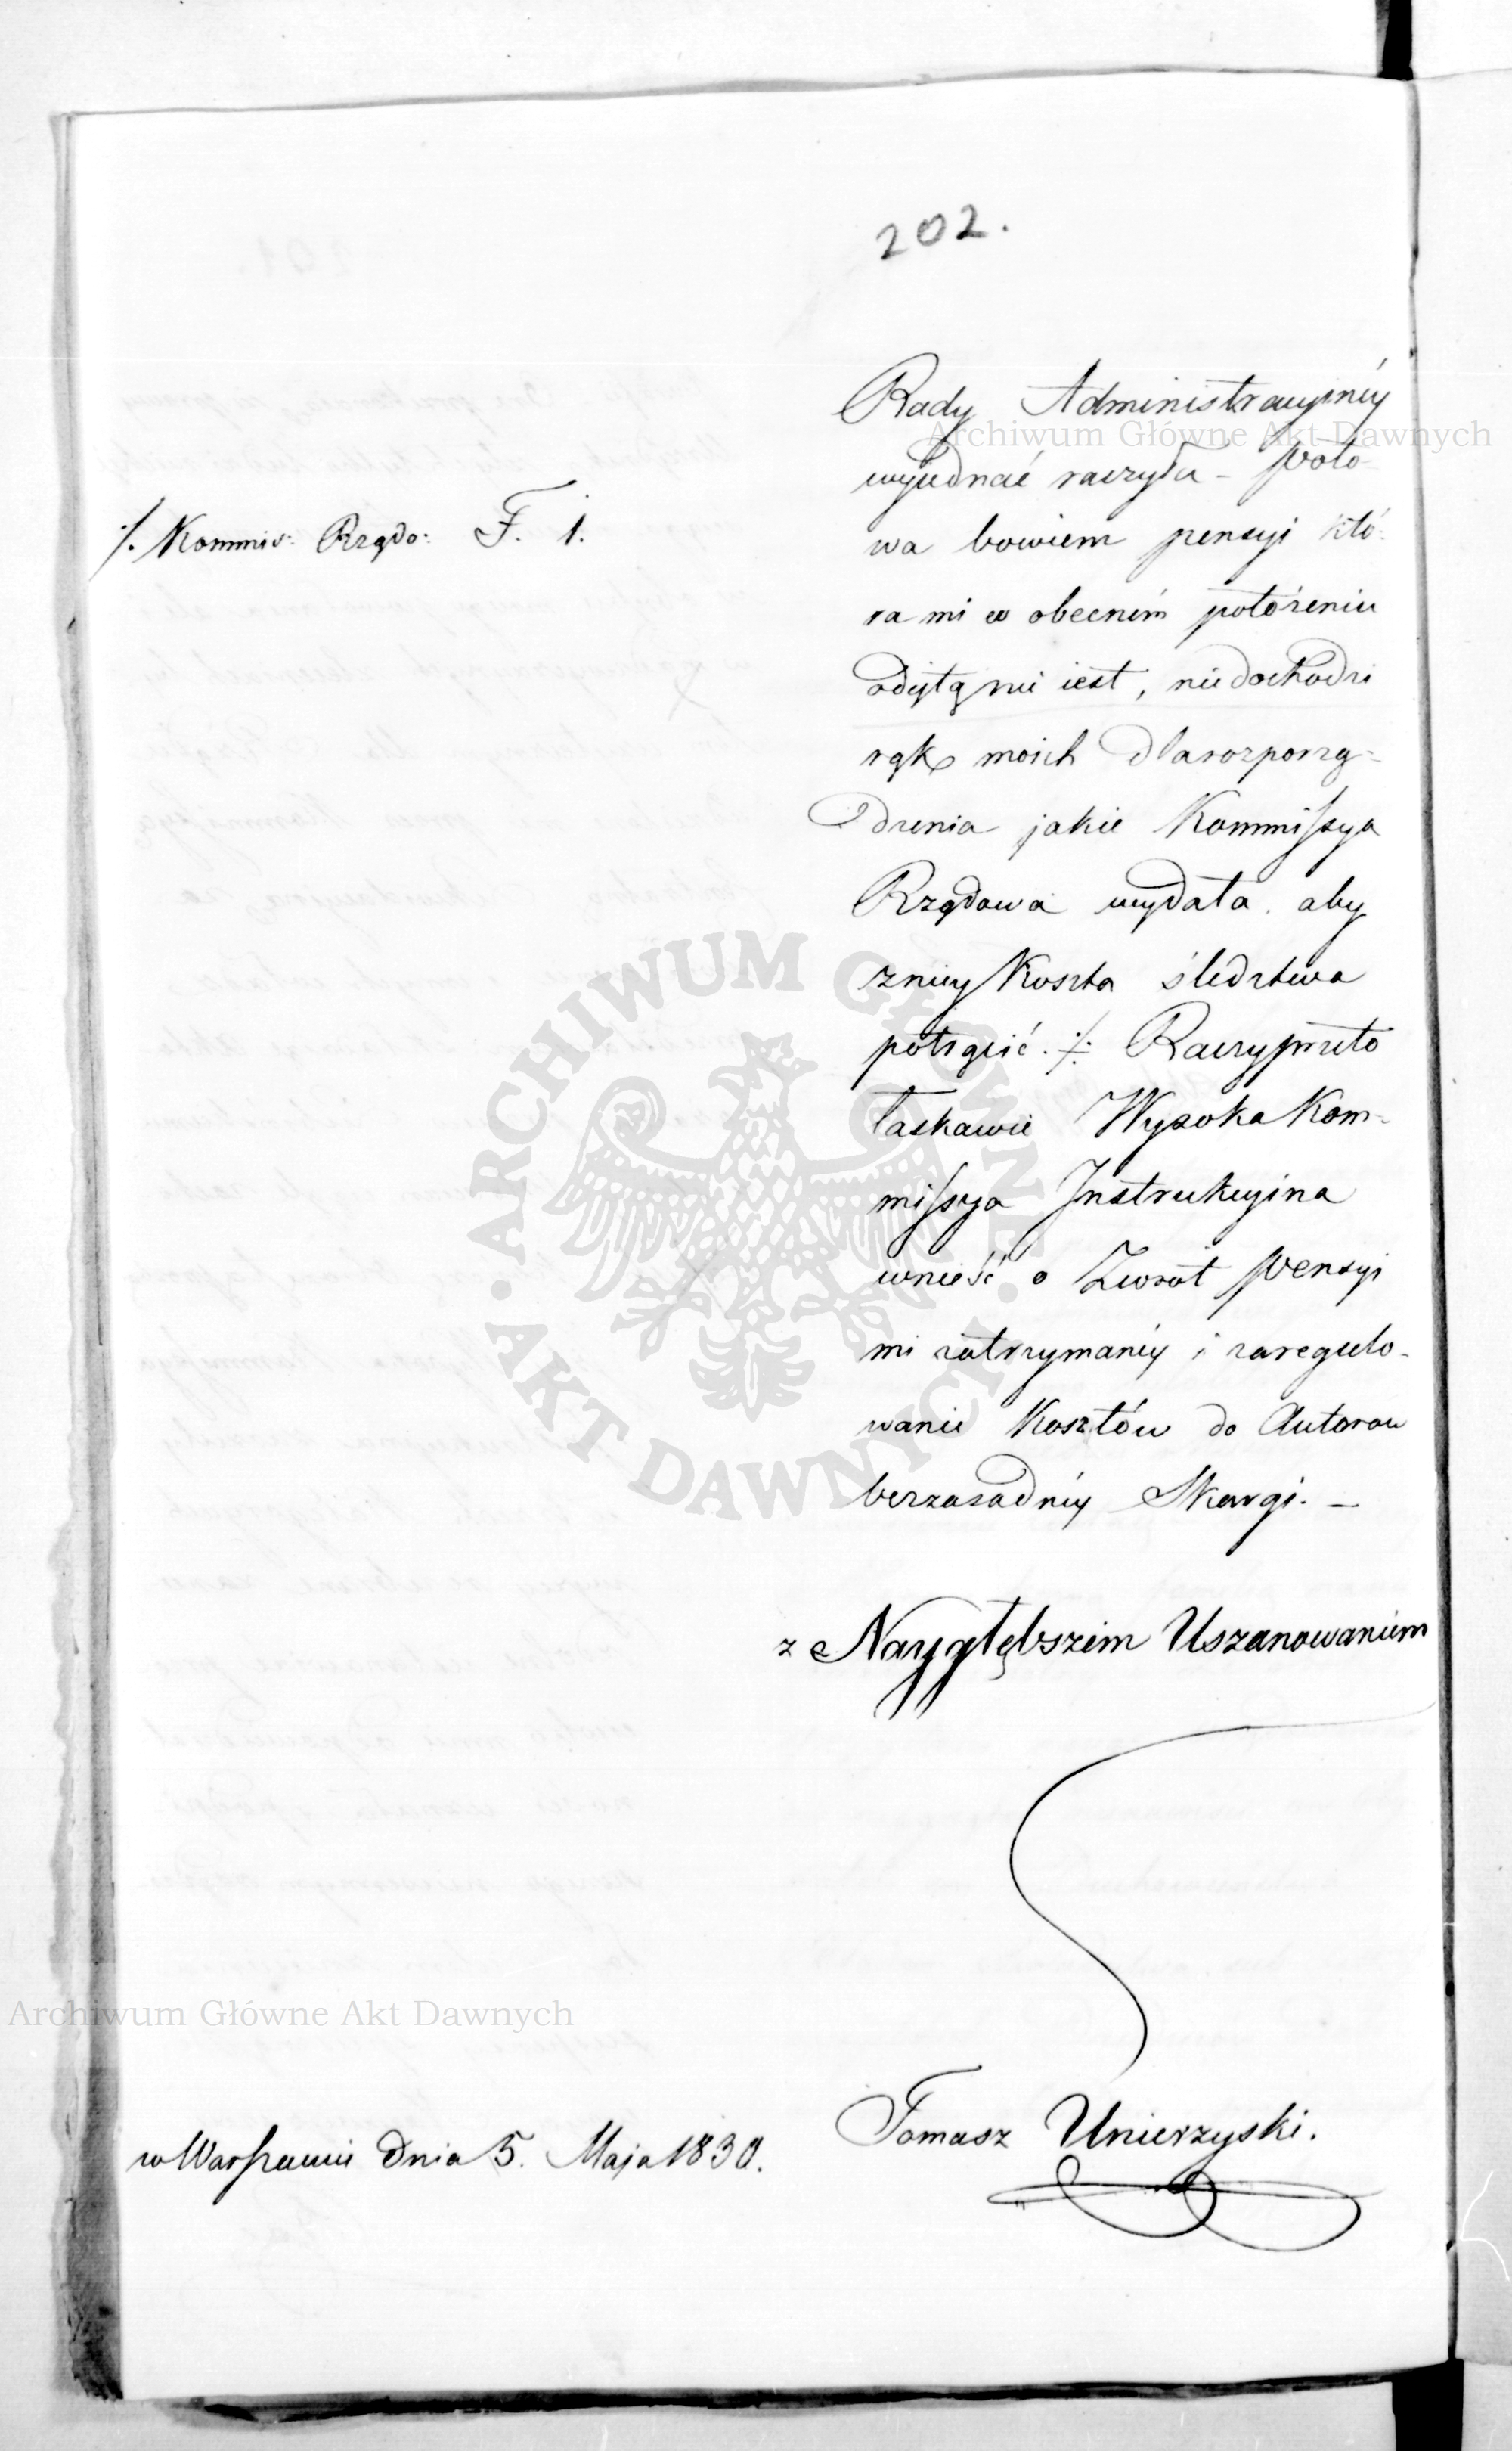 202.
Rady Administracyjnéy
wyiednać raczyła - Poło-
./. Kommis: Rządo: F. 1.
wa bowiem pensyi któ-
ra mi w obecném położeniu
odiętą nie iest, nie dochodzi
rąk moich dla rozporzą-
dzenia jakie Kommissya
Rządowa wydała aby
zniey Koszta śledztwa
potrącić ./. Raczy przeto
łaskawie Wysoka Kom-
missya Instrukcyina
wnieść o Zwrot Pensyi
mi zatrzymanéy i zaregulo-
wanie Kosztów do Autorów
bezzasadnéy Skargi. —
z Nayygłębszém Uszanowaniem
Tomasz Unierzyski.
w Warszawie dnia 5. Maja 1830.
Archiwum Główne Akt Dawnych
Archiwum Główne Akt Dawnych
· ARCHIWUM GŁÓWNE · AKT DAWNYCH